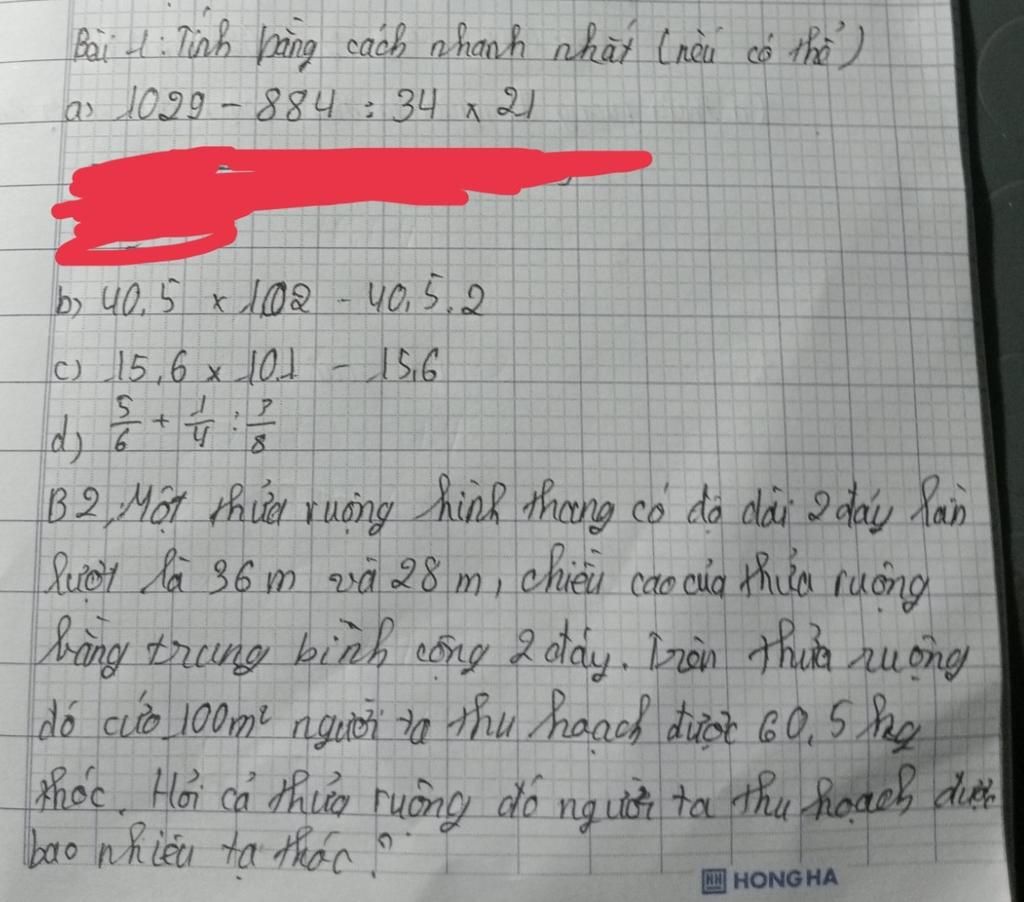 Bài 1: Tính bằng cách nhanh nhất (nếu có thể)
a) 1029 - 884 : 34 x 21
b) 40,5 x 102 - 40,5.2
c) 15,6 x 101 - 15,6
d) 5/6 + 1/4 : 3/8
B2, Một thửa ruộng hình thang có độ dài 2 đáy lần
lượt là 36 m và 28 m, chiều cao của thửa ruộng
bằng trung bình cộng 2 đáy. Trên thửa ruộng
đó cứ 100m² người ta thu hoạch được 60,5 kg
thóc. Hỏi cả thửa ruộng đó người ta thu hoạch được
bao nhiêu tạ thóc?
HH HONG HA